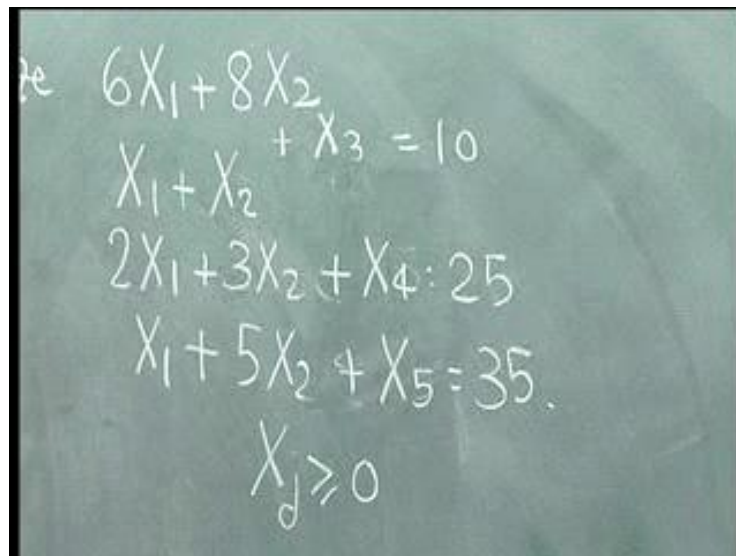 6X₁ + 8X₂
X₁ + X₂ + X₃ = 10
2X₁ + 3X₂ + X₄ : 25
X₁ + 5X₂ + X₅ = 35.
Xⱼ ≥ 0